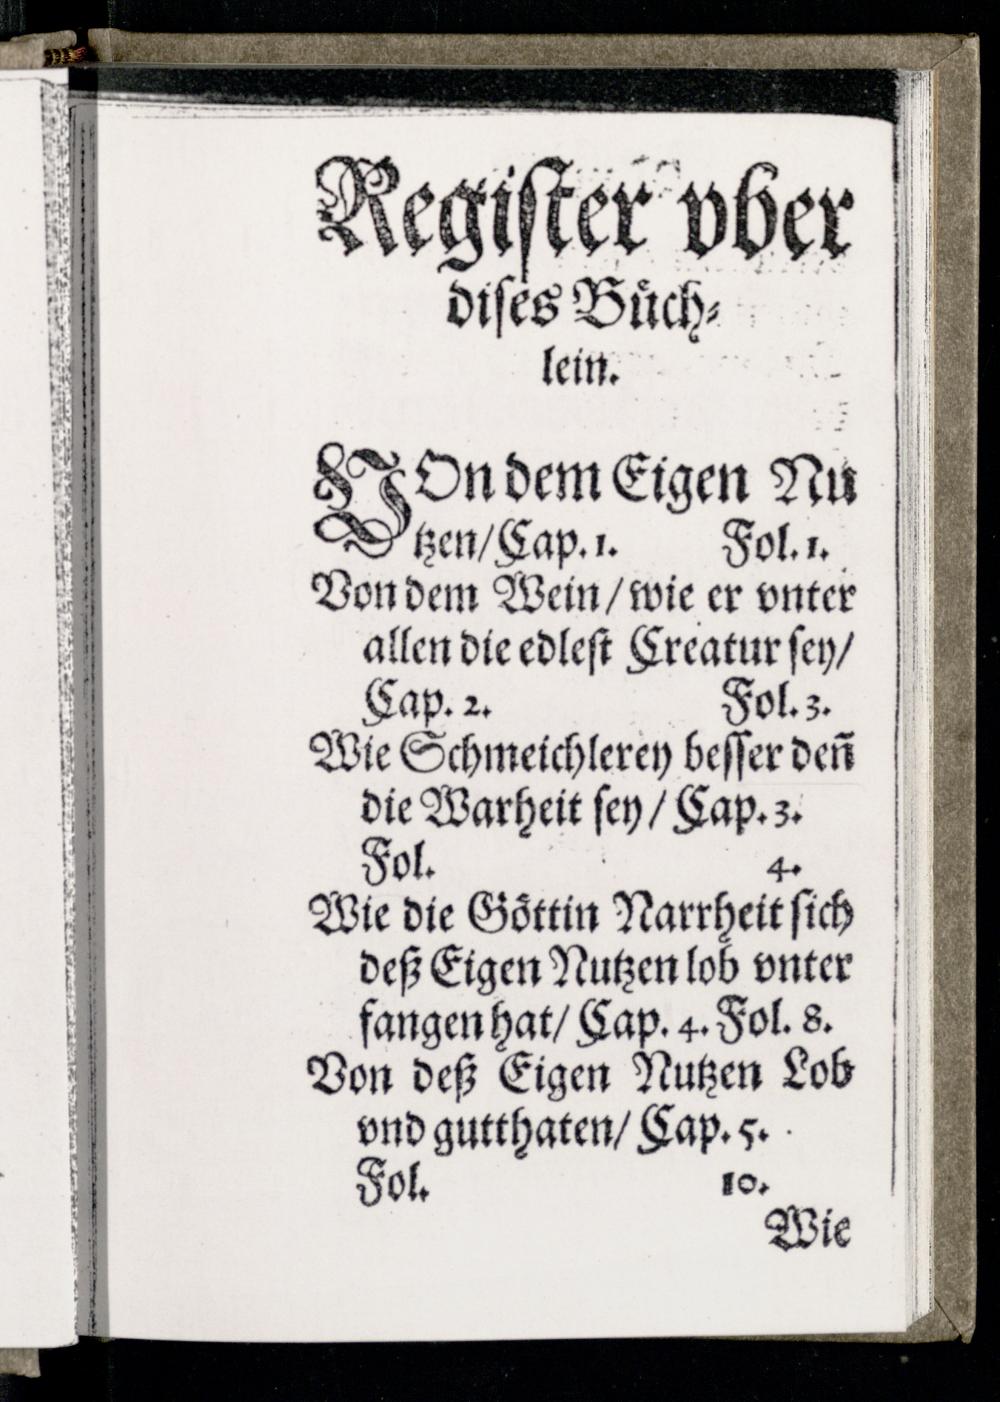 Regiſter vber
diſes Buͤch⸗
lein.
VOn dem Eigen Nu
tzen/Cap. 1. Fol. 1.
Von dem Wein/wie er vnter
allen die edleſt Creatur ſey/
Cap. 2. Fol. 3.
Wie Schmeichlerey beſſer deñ
die Warheit ſey/Cap. 3.
Fol. 4.
Wie die Goͤttin Narrheit ſich
deß Eigen Nutzen lob vnter
fangen hat/Cap. 4. Fol. 8.
Von deß Eigen Nutzen Lob
vnd gutthaten/Cap. 5.
Fol. 10.
Wie